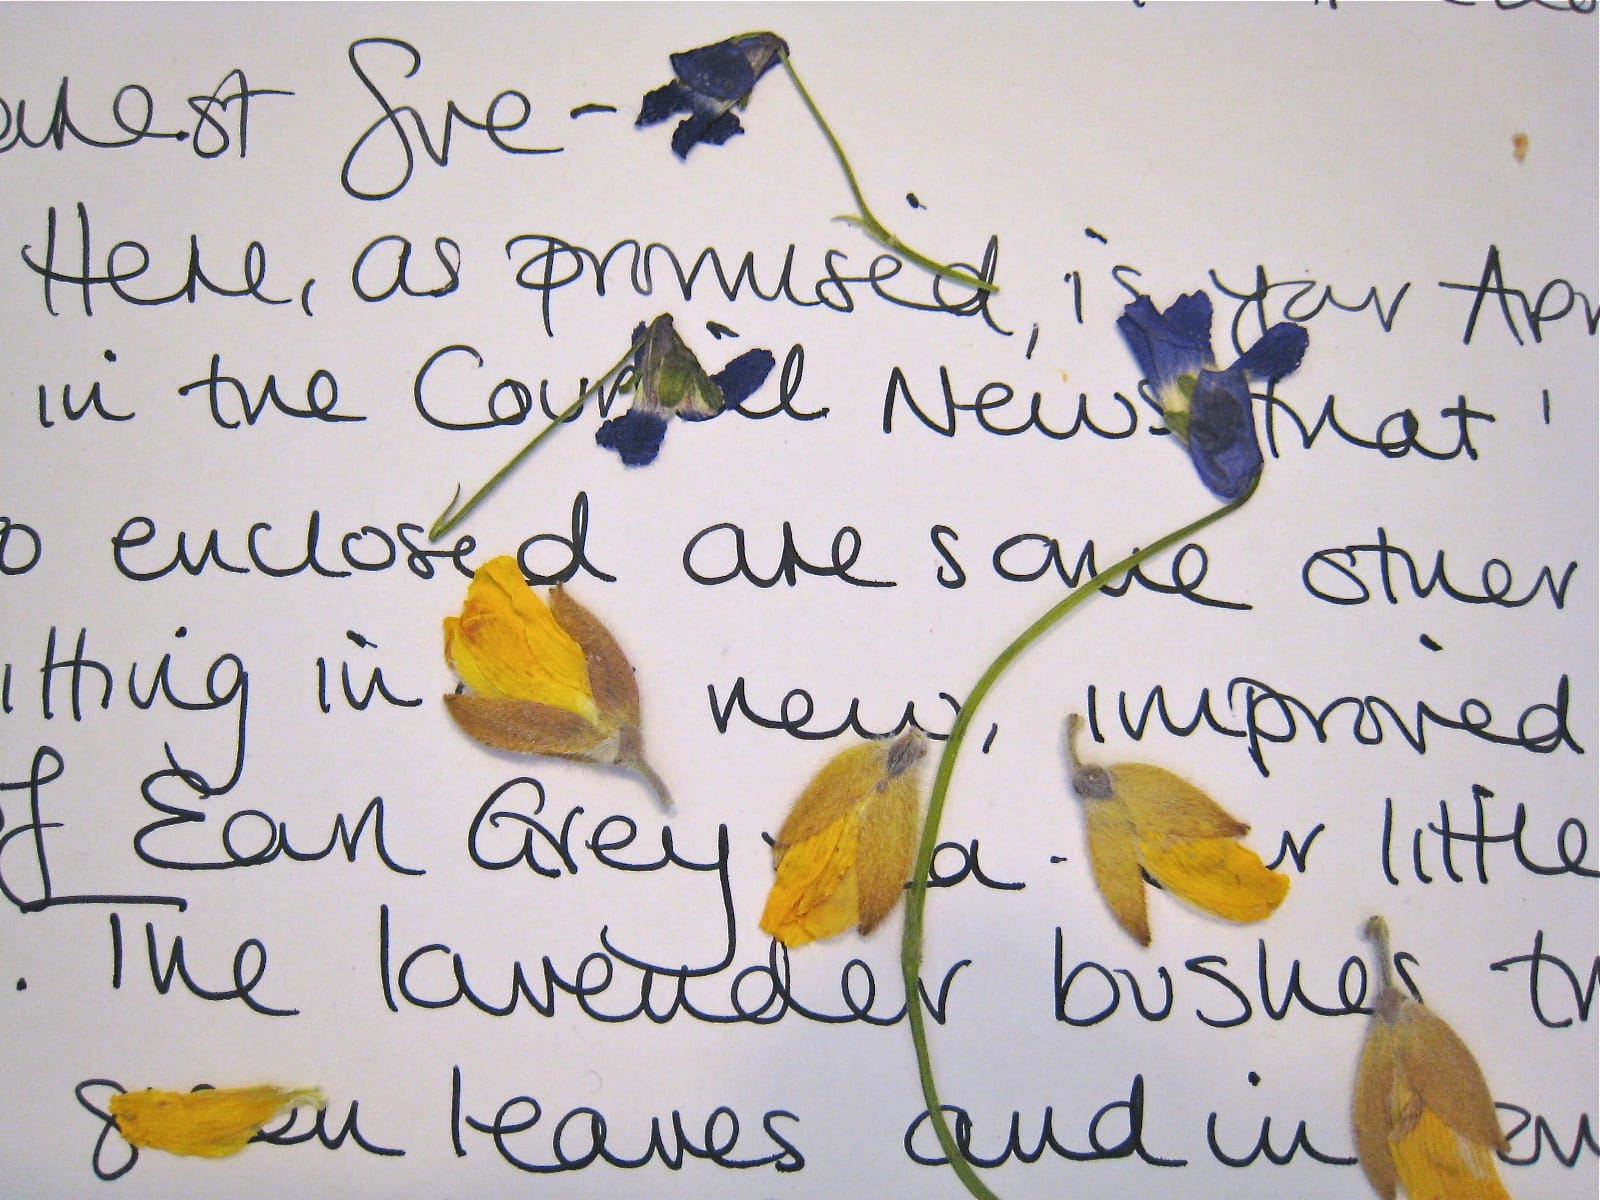 arest Sue-
Here, as promised, is your Apr
in the Council News that
o enclosed are some other
itting in new, improved
of Earl Grey a little
. The lavender bushes
green leaves and in